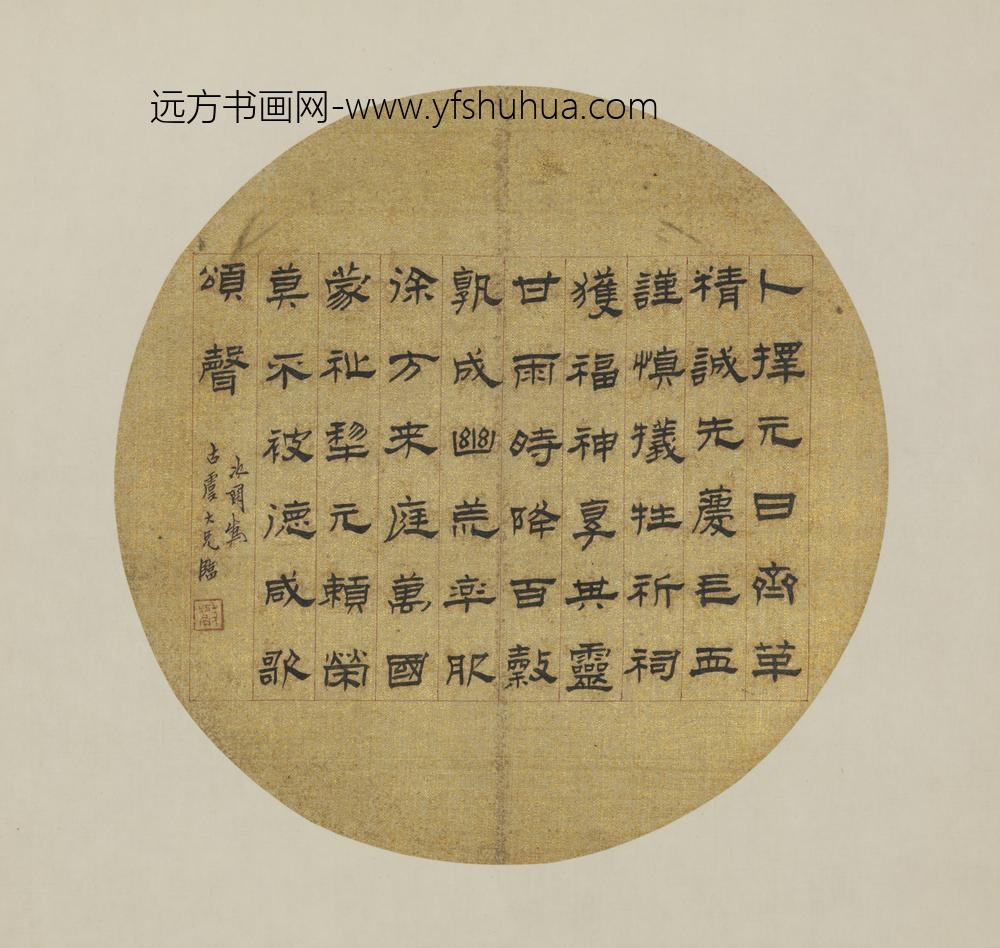 远方书画网-www.yfshuhua.com
卜擇元日齊革
精誠先薦毛血
謹慎犧牲祈祠
獲福神享其靈
甘雨時降百穀
孰成幽荒率服
徐方来庭萬國
蒙祉犂元賴榮
莫不被德咸歌
頌聲
古虞大兄臨